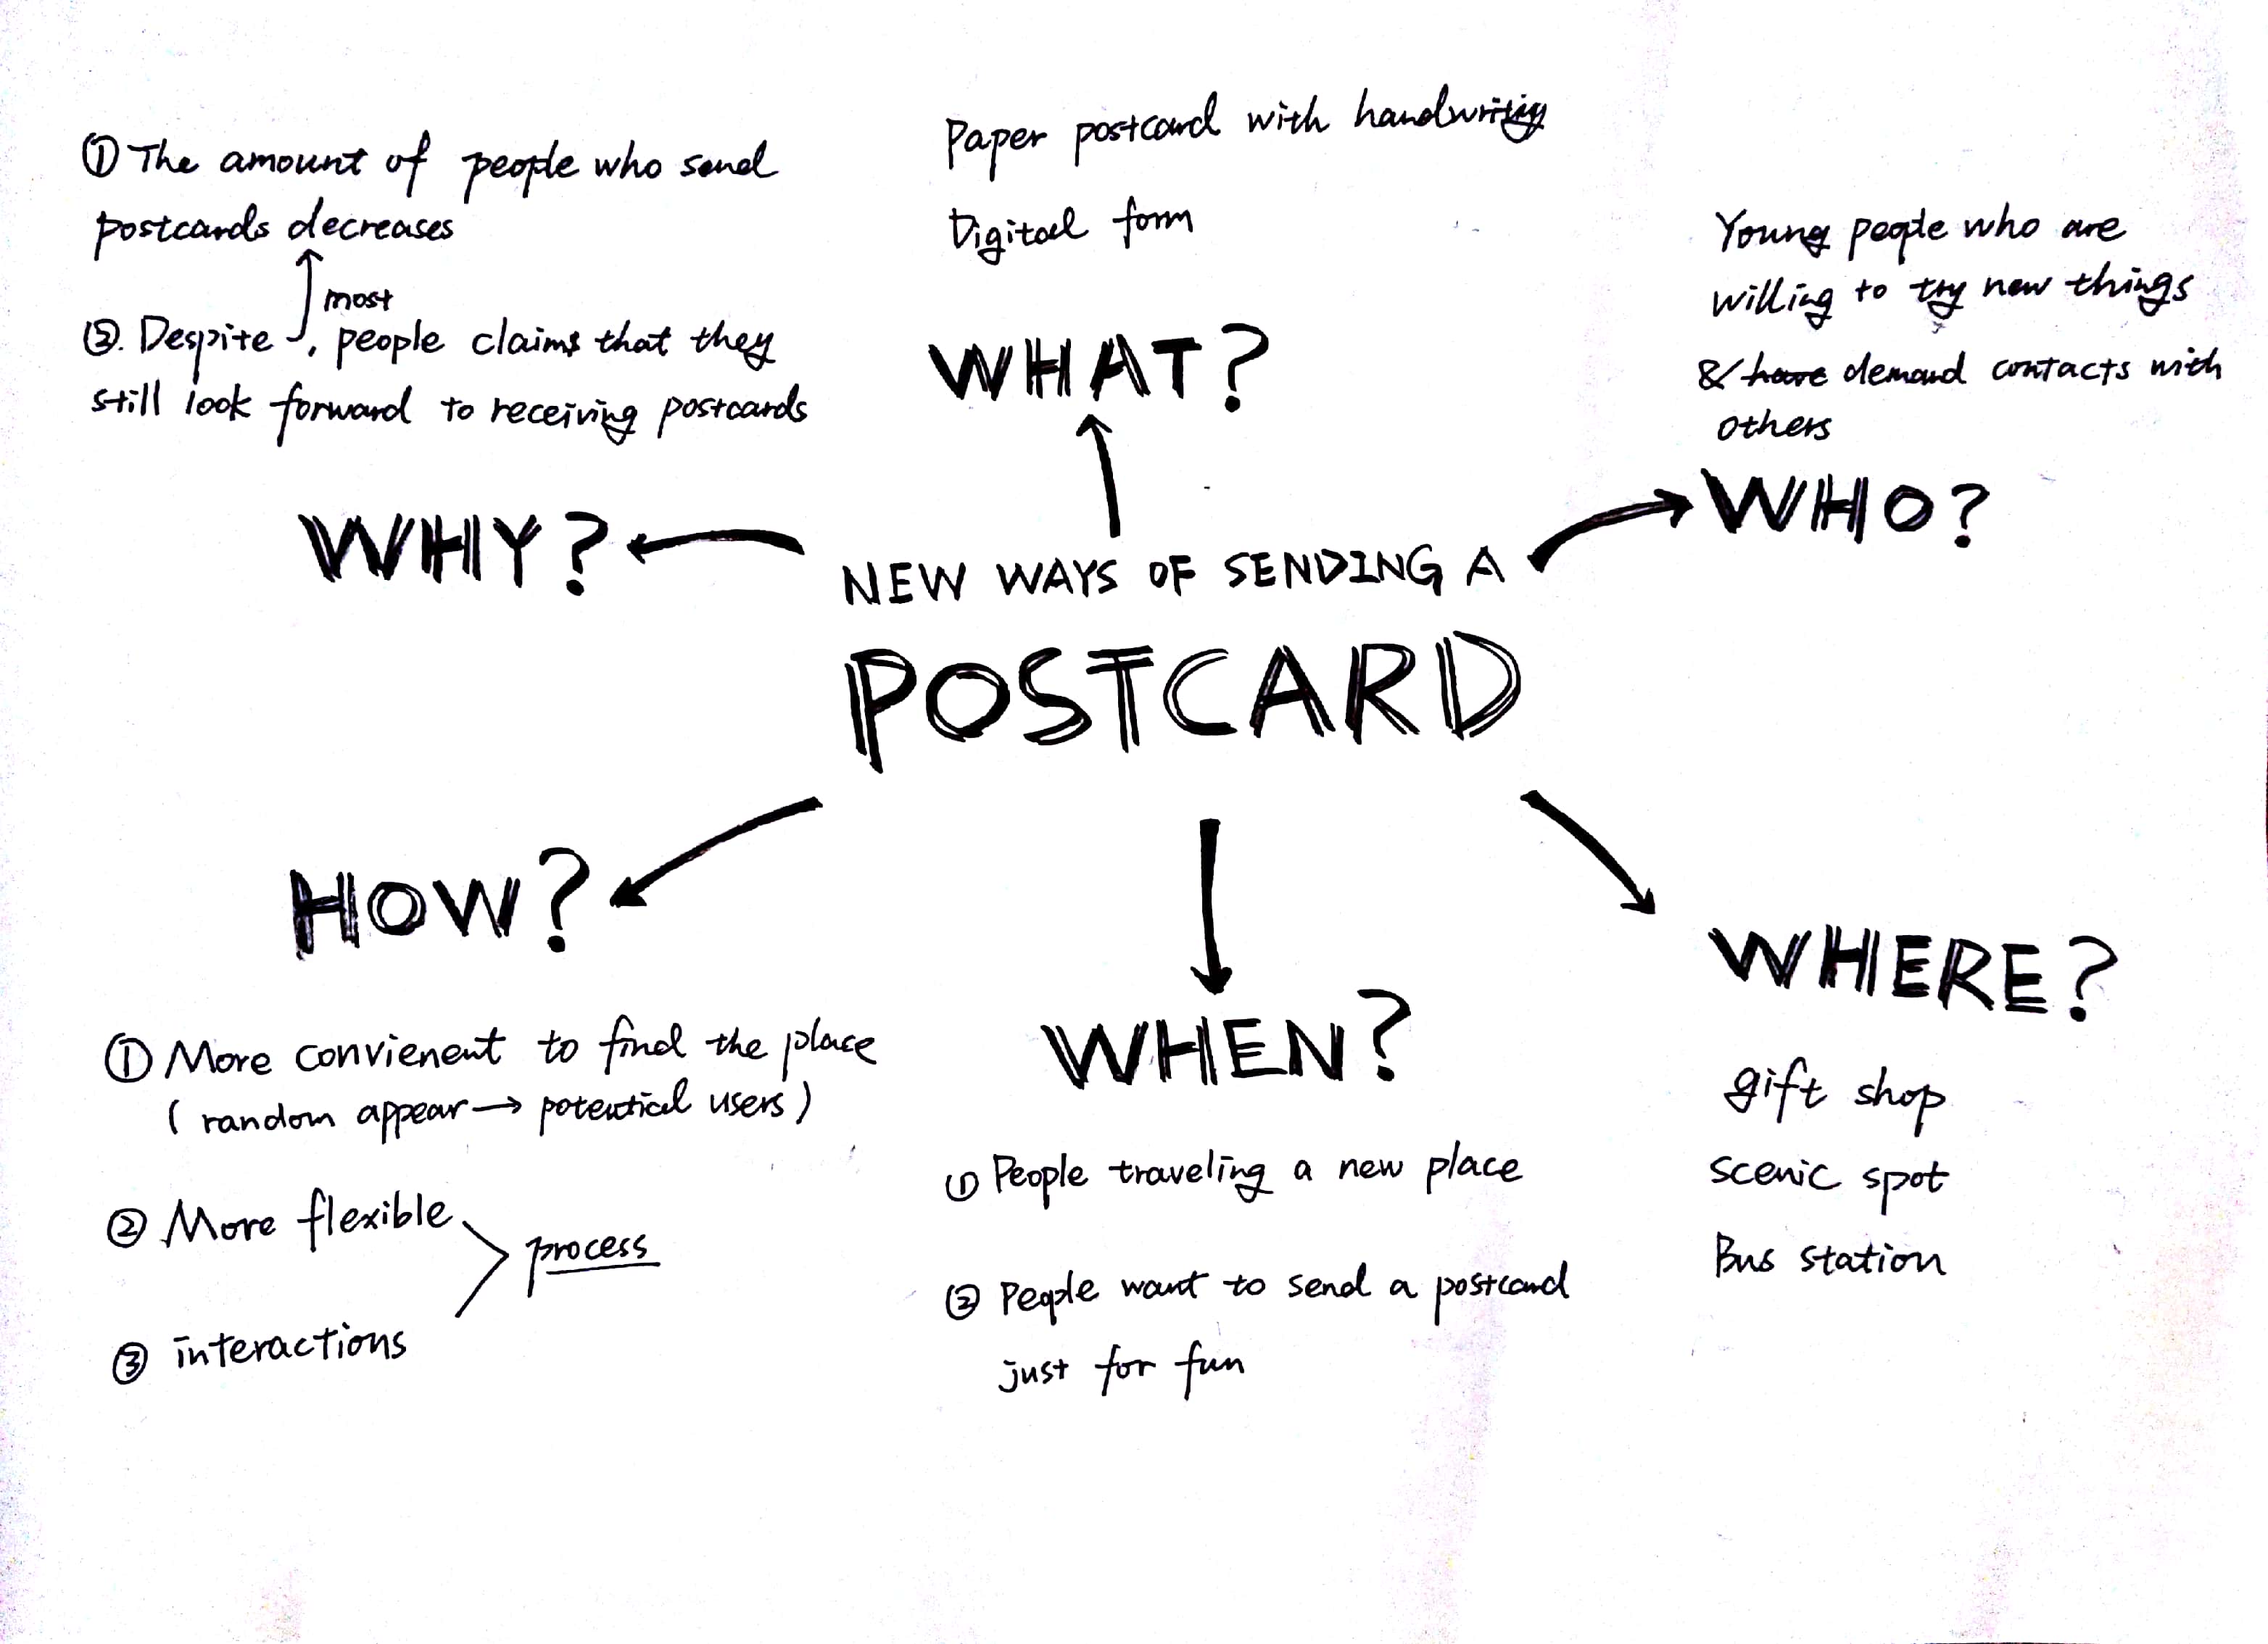 ① The amount of people who send
postcards decreases
most
②. Despite , people claims that they
still look forward to receiving postcards
WHY?
Paper postcard with handwriting
Digital form
WHAT?
Young people who are
willing to try new things
& have demand contacts with
others
WHO?
NEW WAYS OF SENDING A
POSTCARD
HOW?
① More convienent to find the place
( random appear → potential users )
② More flexible
process
③ interactions
WHEN?
① People traveling a new place
② People want to send a postcard
just for fun
WHERE?
gift shop
scenic spot
Bus station